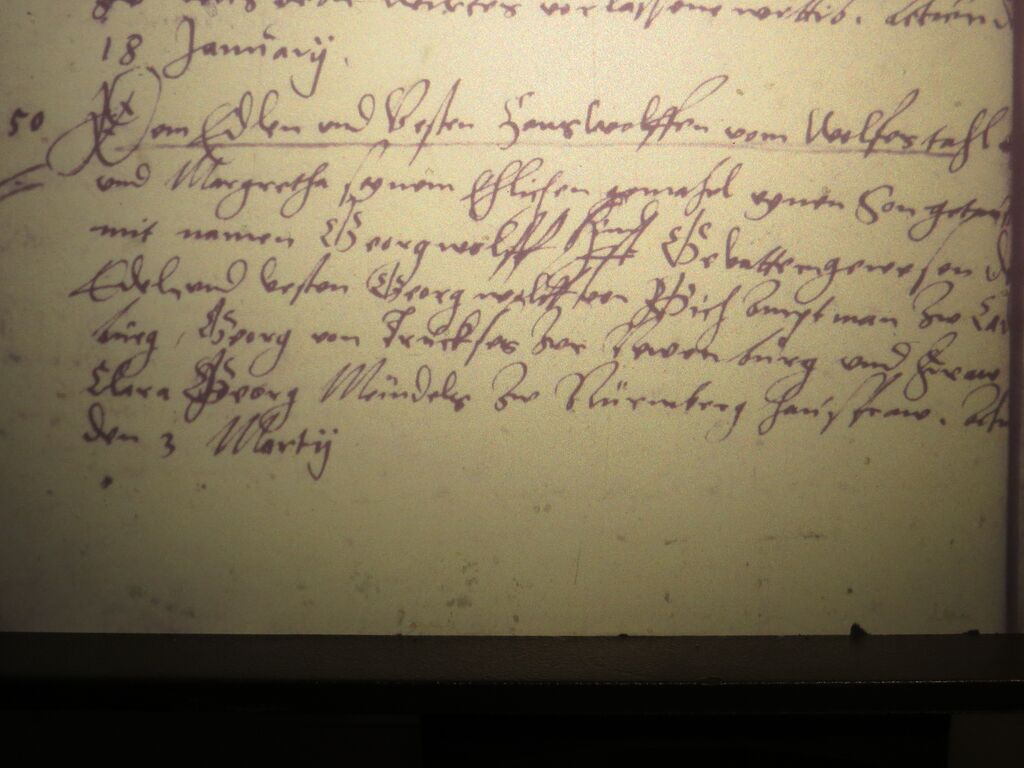 verlassene wittib. Actum
18 Januarÿ.
50 Dem Edlen und Vesten Hans Wolffen vom Wolfestahl
und Margretha seynem Ehlichen gemahel eynen Son
mit namen Georg wolff Gevatter gewesen
Edel und vesten Georg wolff von ambtman zw
burg, Georg von Truckses zw und Fraw
Clara Georg Meindels zw Nürmberg hausfraw. Actu
den 3 Martÿ